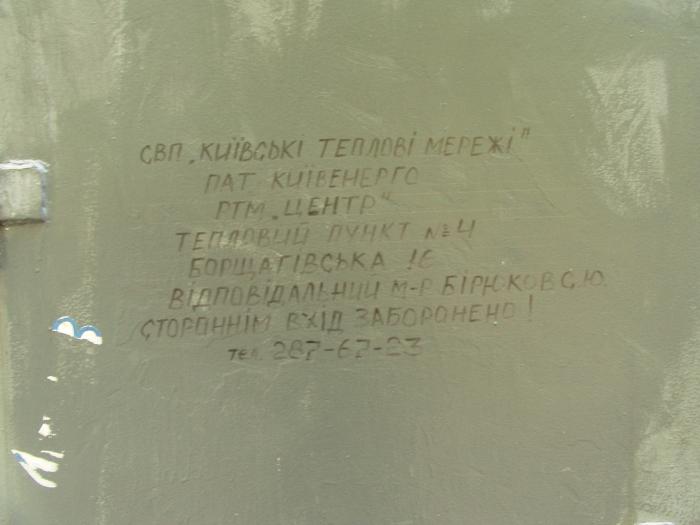 СВП „КИЇВСЬКІ ТЕПЛОВІ МЕРЕЖІ"
ПАТ КИЇВЕНЕРГО
РТМ „ЦЕНТР"
ТЕПЛОВИЙ ПУНКТ №4
БОРЩАГІВСЬКА
ВІДПОВІДАЛЬНИЙ М-Р БІРЮКОВ С.Ю.
СТОРОННІМ ВХІД ЗАБОРОНЕНО!
тел. 287-67-23